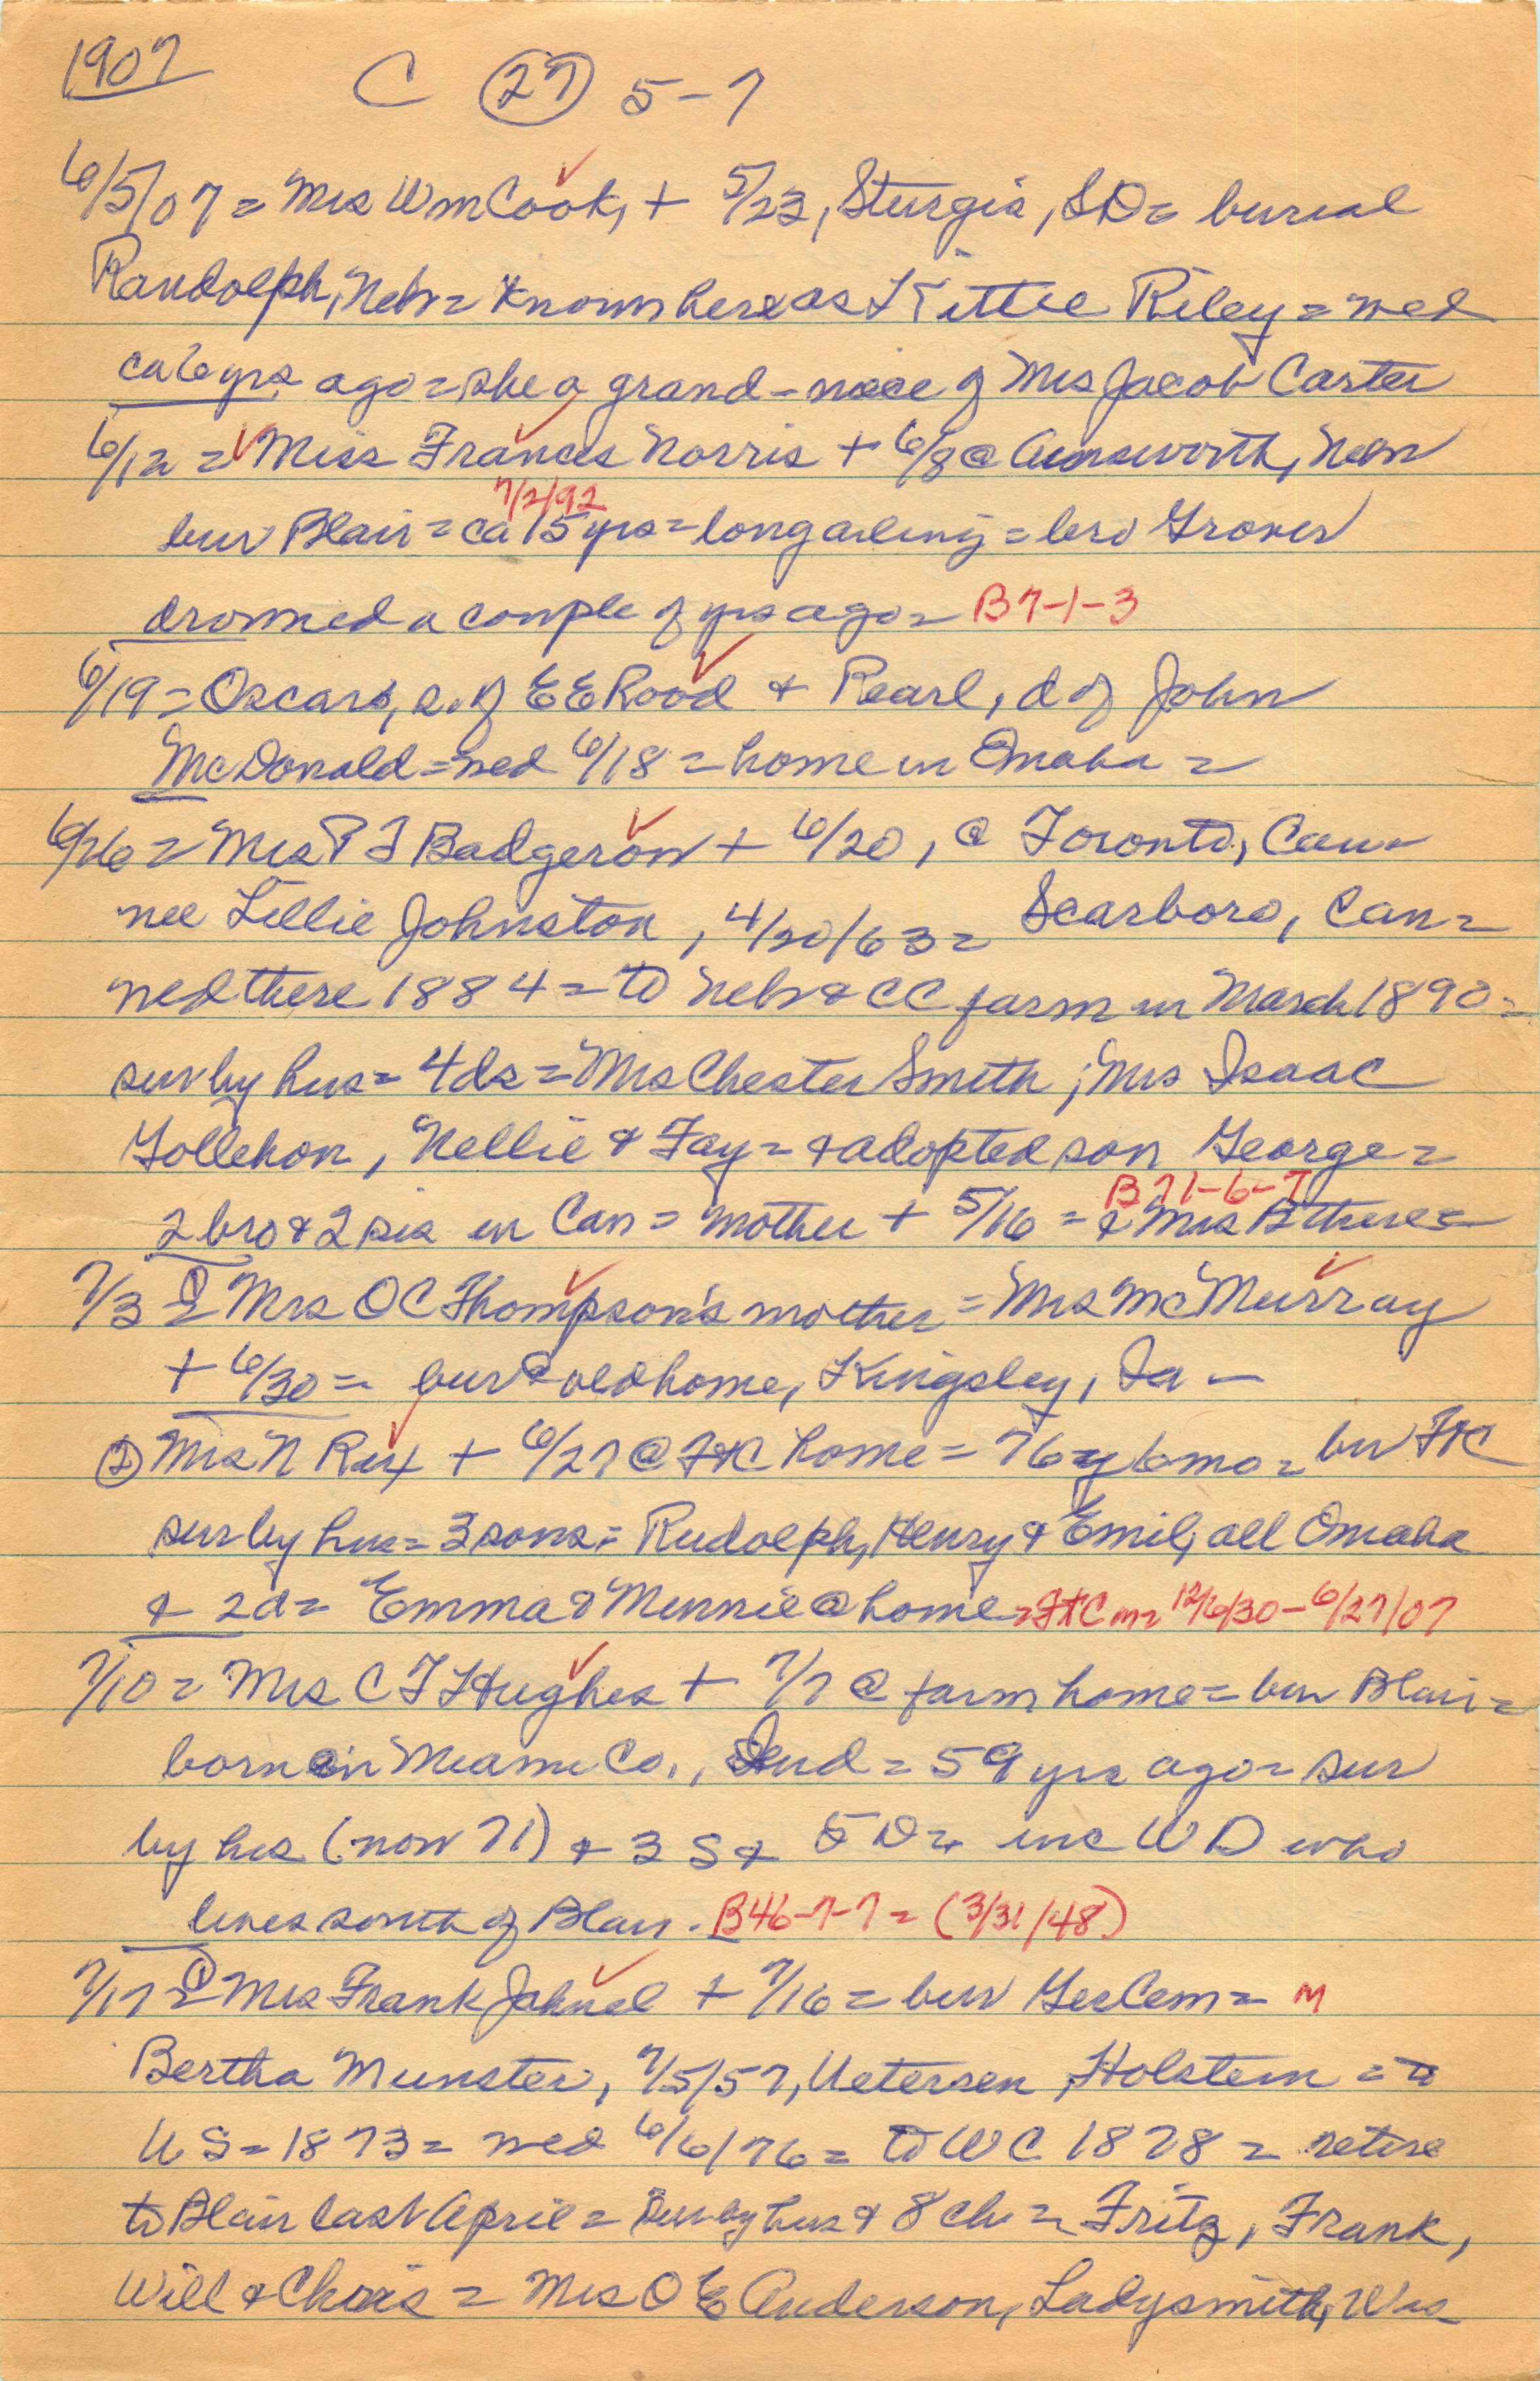 1907 C (27) 5-7
6/5/07 = Mrs Wm Cook, + 5/23, Sturgis, SD = burial
Randolph, Nebr = known here as Kittie Riley = wed
ca 6 yrs ago = she a grand-niece of Mrs Jacob Carter
6/12 = Miss Frances Norris + 6/8 @ Ainsworth, Nebr
7/2/92
bur Blair = ca 15 yrs = long ailing = bro Grover
drowned a couple of yrs ago = B7-1-3
6/19 = Oscar, s. of E E Rood & Pearl, d of John
McDonald = wed 6/18 = home in Omaha =
6/26 = Mrs P F Badgerow + 6/20, @ Toronto, Can =
nee Lillie Johnston, 4/20/63 = Scarboro, Can =
wed there 1884 = to Nebr & CC farm in March 1890 =
sur by hus = 4 ds = Mrs Chester Smith; Mrs Isaac
Gollehon, Nellie & Fay = & adopted son George =
B 71-6-7
2 bro & 2 sis in Can = mother + 5/16 = & Mrs B there =
7/3 = (1) Mrs O C Thompson's mother = Mrs McMurray
+ 6/30 = bur @ old home, Kingsley, Ia -
(2) Mrs N Rix + 6/27 @ FtC home = 76 y 6 mo = bur FtC
sur by hus = 3 sons = Rudolph, Henry & Emil, all Omaha
& 2 d = Emma & Minnie @ home = FtC m = 12/6/30 - 6/27/07
7/10 = Mrs C F Hughes + 7/7 @ farm home = bur Blair =
born in Miami Co., Ind = 59 yrs ago = sur
by hus (now 71) & 3 S & 5 D = inc W D who
lives south of Blair. B46-7-7 = (3/31/48)
7/17 = (1) Mrs Frank Jahnel + 7/16 = bur Ger Cem = M
Bertha Munster, 7/5/57, Uetersen, Holstein = to
US = 1873 = wed 6/6/76 = to WC 1878 = retire
to Blair last April = sur by hus & 8 ch = Fritz, Frank,
Will & Chris = Mrs O E Anderson, Ladysmith, Wis